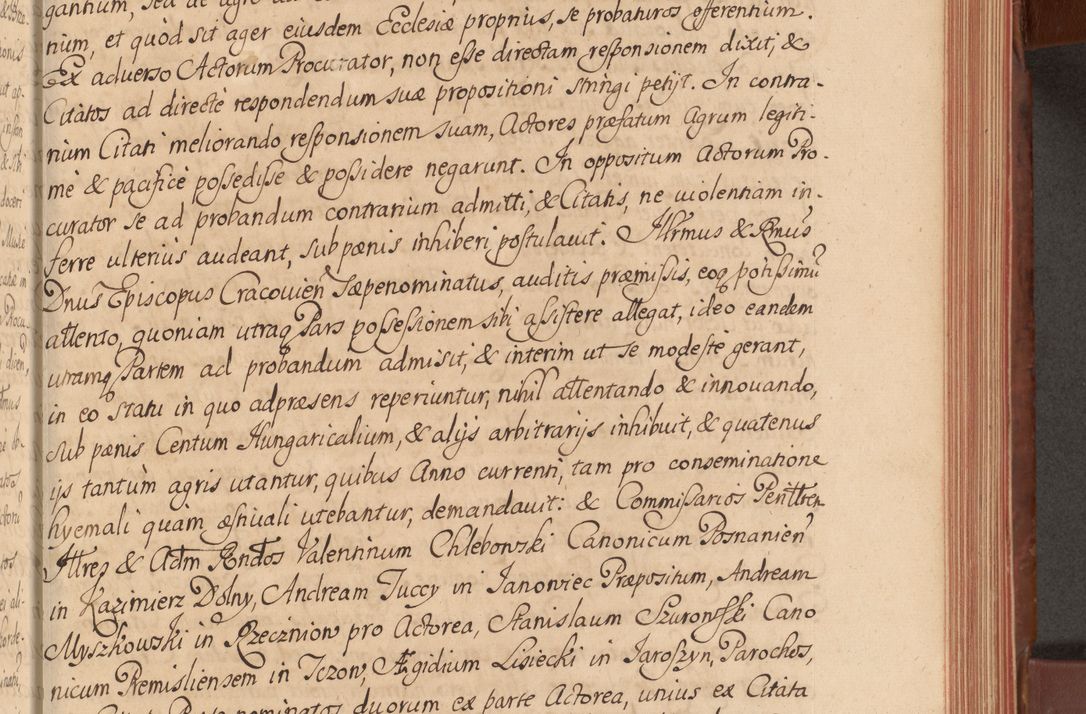 nium, et quòd sit ager eiusdem Ecclesiæ proprius, se probaturos offerentium.
Ex adverso Actorum Procurator, non esse directam responsionem dixit, &
Citatos ad directè respondendum suæ propositioni stringi petijt. In contra-
rium Citati meliorando responsionem suam, Actores præfatum agrum legiti-
mè & pacificè possedisse & possidere negarunt. In oppositum Actorum Pro-
curator se ad probandum contrarium admitti, & Citatis, ne violentiam in-
ferre ulterius audeant, sub pænis inhiberi postulavit. Illrmus & Rmus
Dnus Episcopus Cracovień sæpenominatus, auditis præmissis, eoq potissimũ
attento, quoniam utraq Pars possessionem sibi assistere allegat, ideo eandem
utramq Partem ad probandum admisit, & interim ut se modestè gerant,
in eo statu in quo adpræsens reperiuntur, nihil attentando & innouando,
sub pænis Centum Hungaricalium, & alijs arbitrarijs inhibuit, & quatenus
ijs tantùm agris utantur, quibus Anno currenti, tam pro conseminatione
hyemali quàm æstiuali utebantur, demandauit: & Commissarios
Illres & Adm Rndos Valentinum Chlebowski Canonicum Posnanień
in Kazimierz Dolny, Andream Tuccy in Janowiec Præpositum, Andream
Myszkowski in Rzeczniow pro Actorea, Stanislaum Szuronfski Cano
nicum Premisliensem in Jczow, Ægidium Lisiecki in Jaroszyn, Parochos,
nominatos duorum ex parte Actorea, unius ex Citata